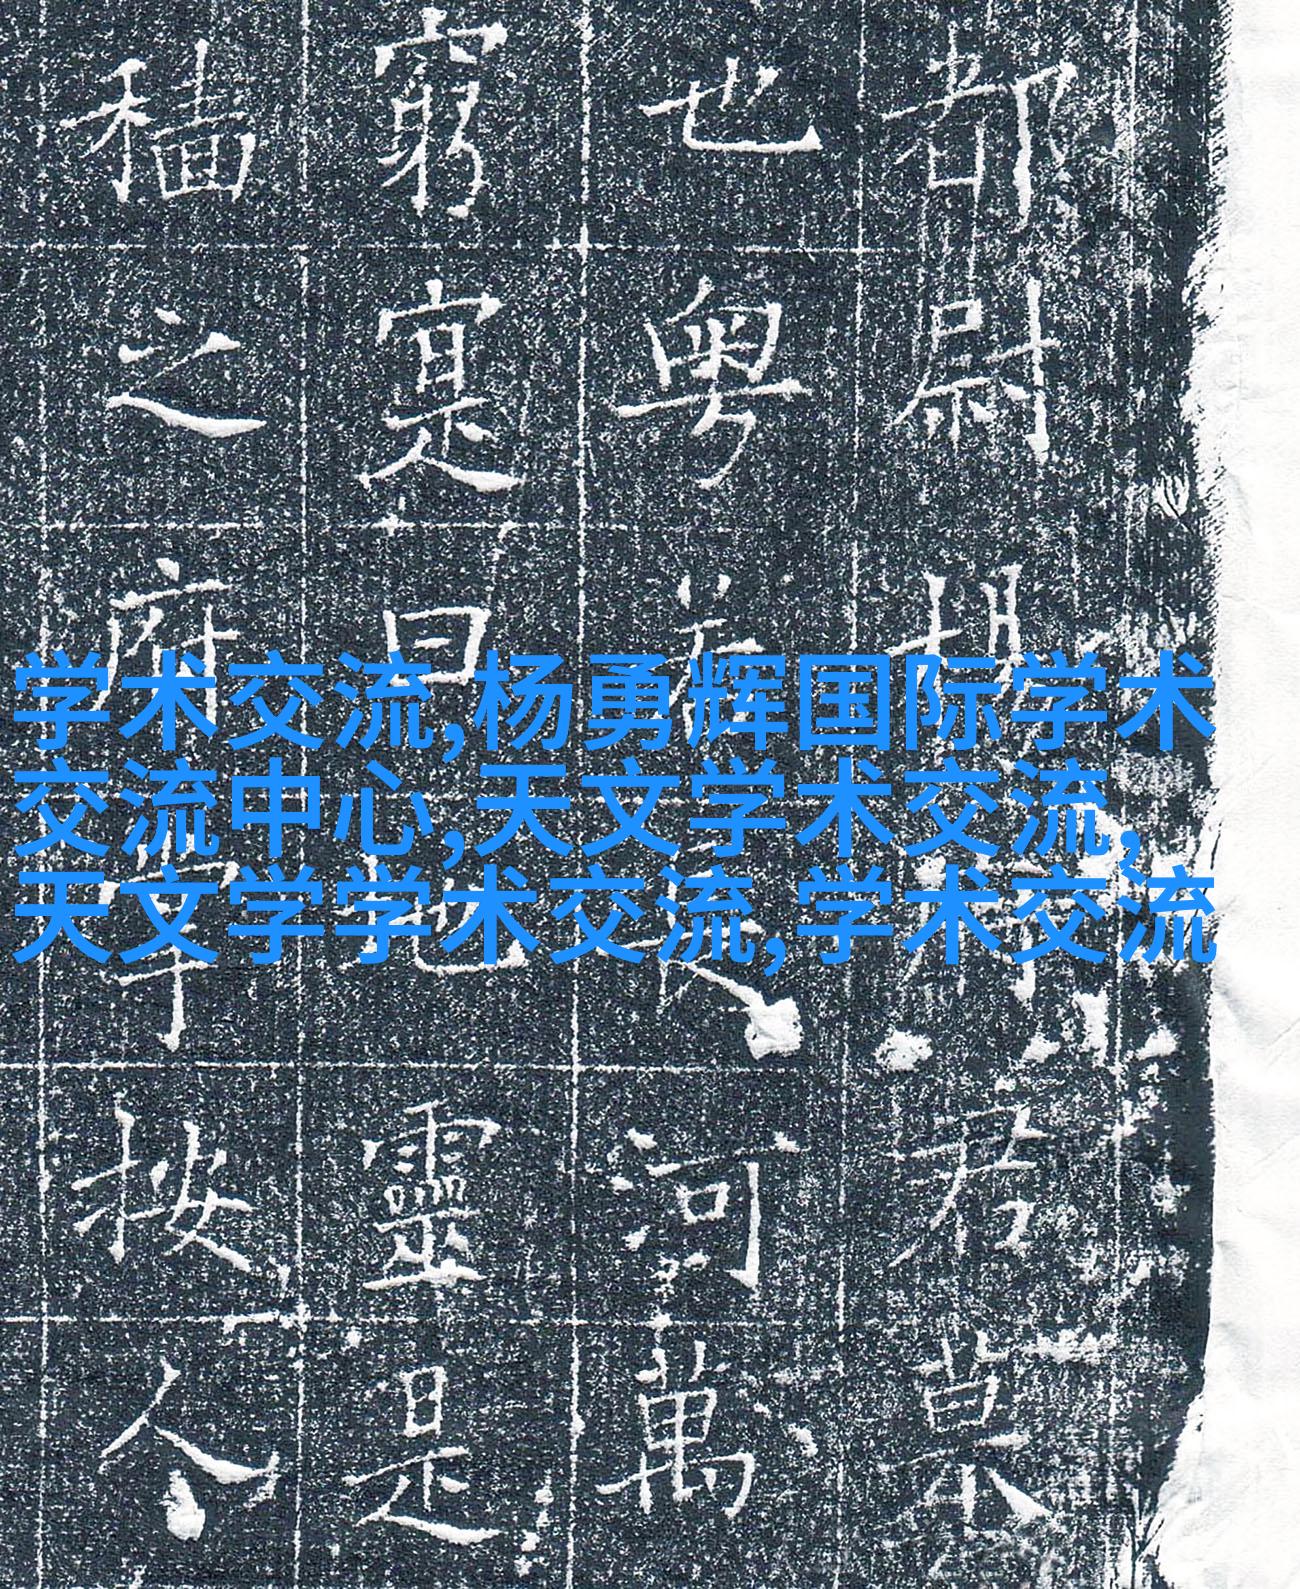 都尉君
也粵若長河萬
窮寔曰地靈是
穡之府按人
学术交流,杨勇辉国际学术
交流中心,天文学术交流,
天文学学术交流,学术交流